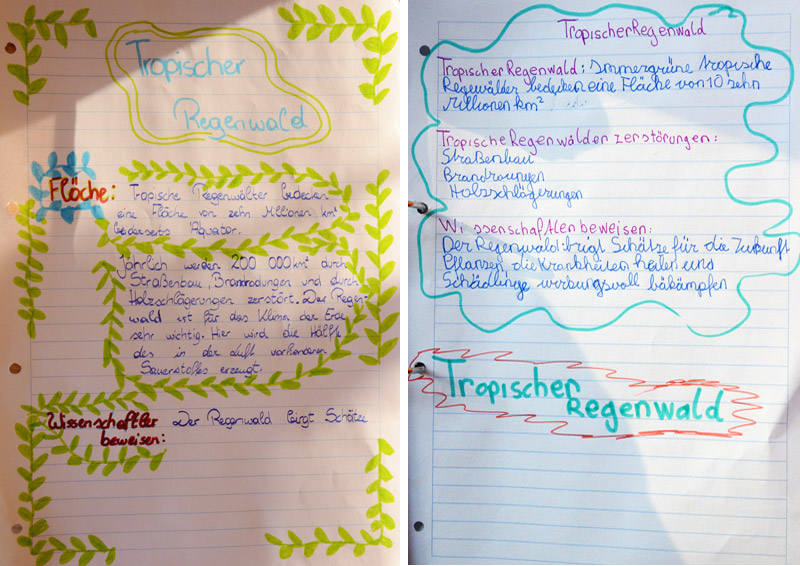 Tropischer
Regenwald
Fläche:
Tropische Regenwälter bedecken
eine Fläche von zehn Millionen km²
beiderseits Äquator.
Jährlich werden 200 000 km² durch
Straßenbau, Brandrodungen und durch
Holzschlägerungen zerstört. Der Regen-
wald ist für das Klima der Erde
sehr wichtig. Hier wird die Hälfte
des in der Luft vorhandenen
Sauerstoffes erzeugt.
Wissenschaftler
beweisen:
Der Regenwald birgt Schätze
Tropischer Regenwald
Tropischer Regenwald: Immergrüne tropische
Regewälder bedecken eine Fläche von 10 zehn
Millionen km²
Tropische Regenwälder zerstörungen:
Straßenbau
Brandroungen
Holzschlägerungen
Wissenschaftlen beweisen:
Der Regenwald brigt Schätze für die Zukunft
Pflanzen, die Krankheiten heilen und
Schädlinge wirbungsvoll bekämpfen
Tropischer
Regenwald